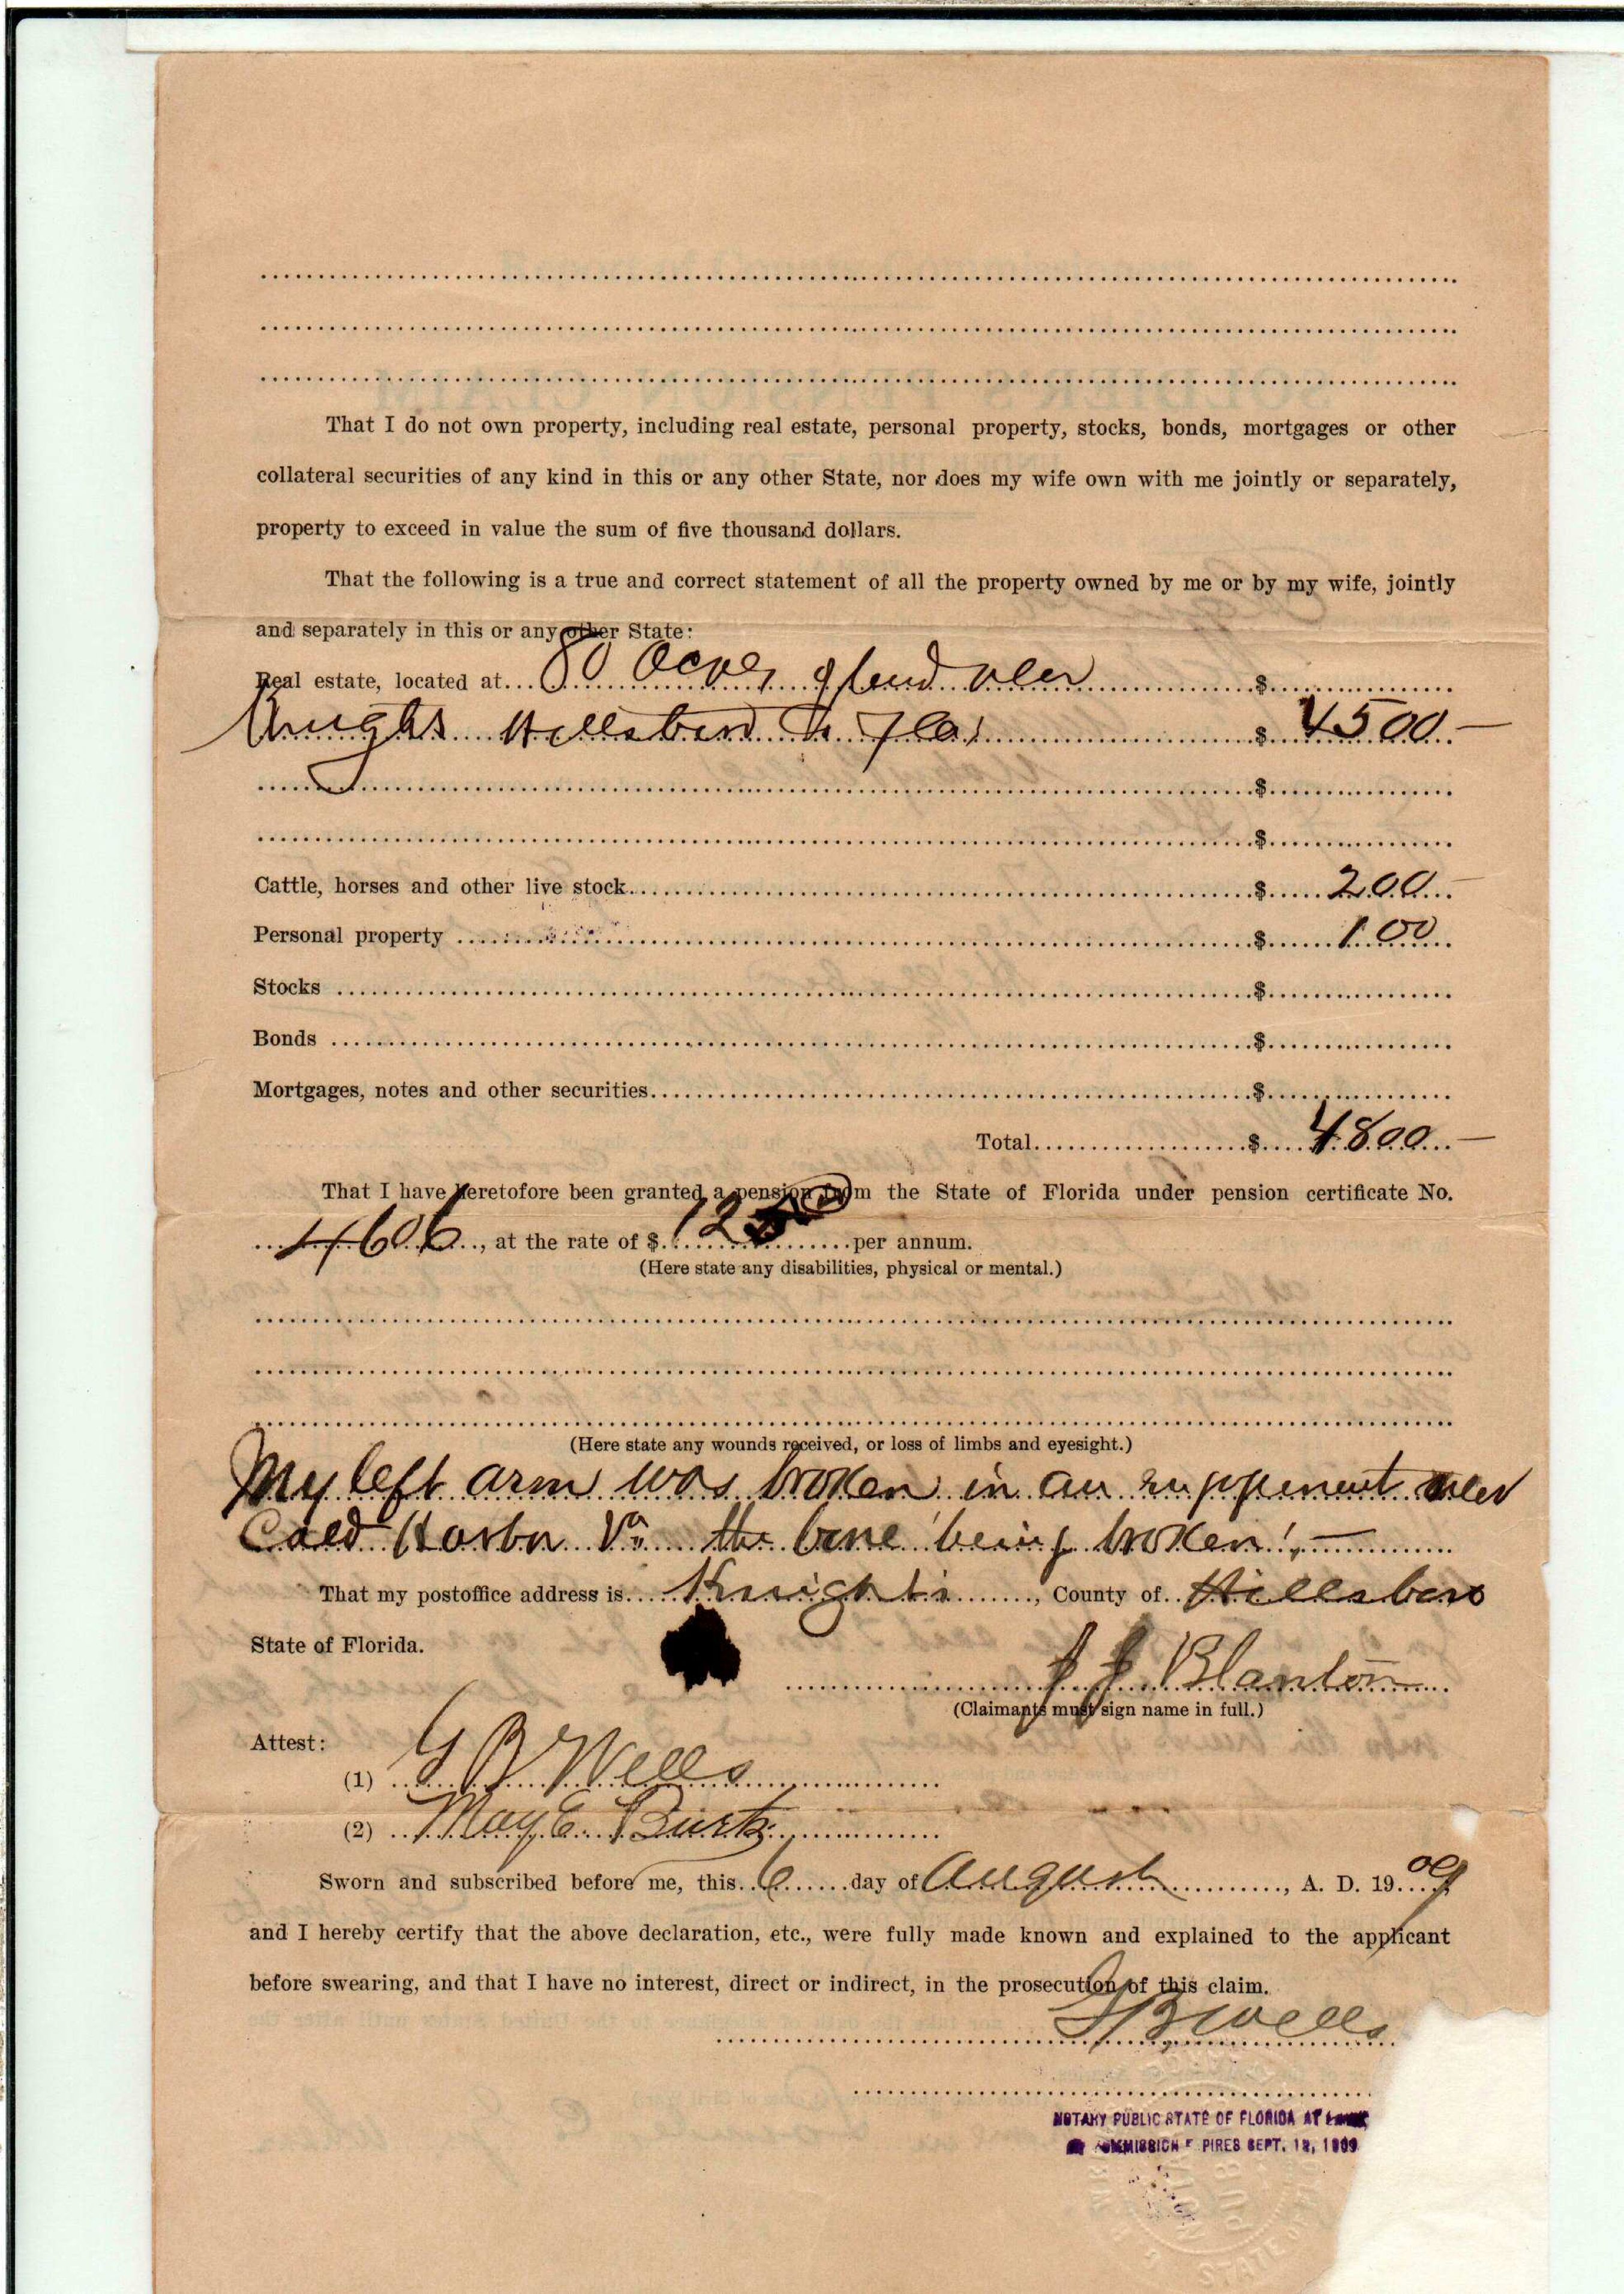 That I do not own property, including real estate, personal property, stocks, bonds, mortgages or other
collateral securities of any kind in this or any other State, nor does my wife own with me jointly or separately,
property to exceed in value the sum of five thousand dollars.
That the following is a true and correct statement of all the property owned by me or by my wife, jointly
and separately in this or any other State:
Real estate, located at 80 acres of land near $
Knights Hillsboro Co Fla. $ 4500-
$
$
Cattle, horses and other live stock $ 200-
Personal property $ 100
Stocks $
Bonds $
Mortgages, notes and other securities $
Total $ 4800-
That I have heretofore been granted a pension from the State of Florida under pension certificate No.
4606, at the rate of $ 12 per annum.
(Here state any disabilities, physical or mental.)
(Here state any wounds received, or loss of limbs and eyesight.)
My left arm was broken in an near
Coald Harbor Va the bone being broken!
That my postoffice address is Knights, County of Hillsboro
State of Florida.
J J Blanton
(Claimants must sign name in full.)
Attest:
(1) G B Wells
(2) May E Burts
Sworn and subscribed before me, this 6 day of August, A. D. 1909
and I hereby certify that the above declaration, etc., were fully made known and explained to the applicant
before swearing, and that I have no interest, direct or indirect, in the prosecution of this claim.
G B Wells
NOTARY PUBLIC STATE OF FLORIDA AT
COMMISSION EXPIRES SEPT. 18, 1909